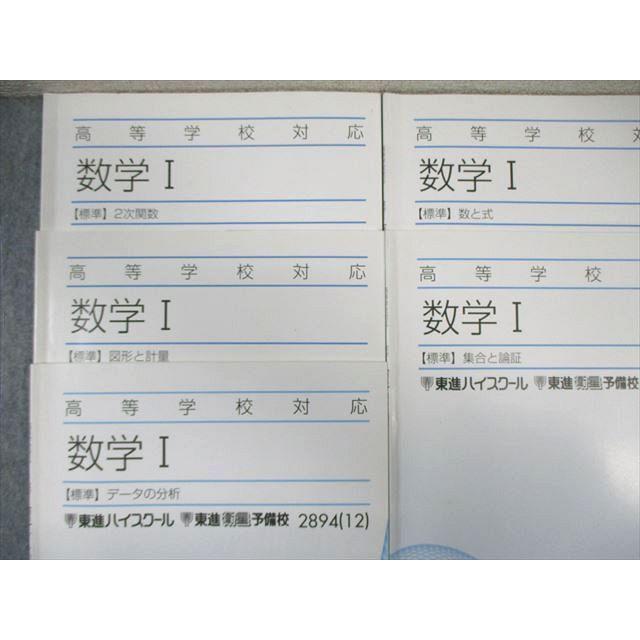 高等学校対応
数学Ⅰ
【標準】2次関数
高等学校対
数学Ⅰ
【標準】数と式
高等学校対応
数学Ⅰ
【標準】図形と計量
高等学校
数学Ⅰ
【標準】集合と論証
東進ハイスクール 東進衛星予備校
高等学校対応
数学Ⅰ
【標準】データの分析
東進ハイスクール 東進衛星予備校 2894(12)